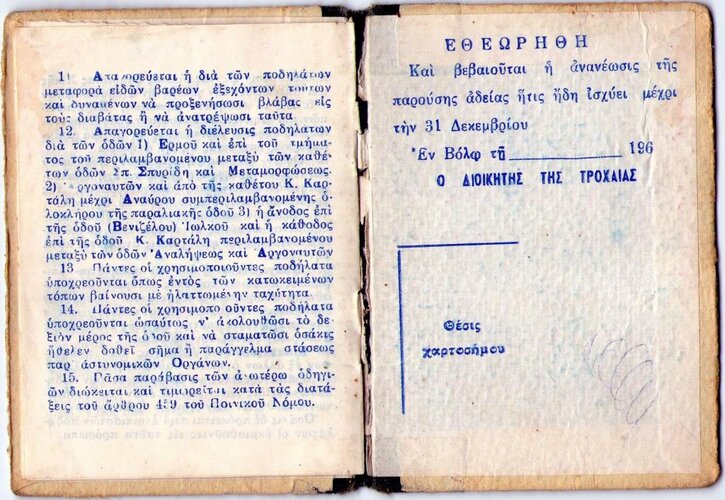 11. Απαγορεύεται ἡ διὰ τῶν ποδηλάτων
μεταφορὰ εἰδῶν βαρέων ἐξεχόντων τούτων
καὶ δυναμένων νὰ προξενήσωσι βλάβας εἰς
τοὺς διαβάτας ἢ νὰ ἀνατρέψωσι ταῦτα.
12. Απαγορεύεται ἡ διέλευσις ποδηλάτων
διὰ τῶν ὁδῶν 1) Ἑρμοῦ καὶ ἐπὶ τοῦ τμήμα-
τος τοῦ περιλαμβανομένου μεταξὺ τῶν καθέ-
των ὁδῶν Σπ. Σπυρίδη καὶ Μεταμορφώσεως.
2) Ἀργοναυτῶν καὶ ἀπὸ τῆς καθέτου Κ. Καρ-
τάλη μέχρι Ἀναύρου συμπεριλαμβανομένης ὁ-
λοκλήρου τῆς παραλιακῆς ὁδοῦ 3) ἡ ἄνοδος ἐπὶ
τῆς ὁδοῦ (Βενιζέλου) Ἰωλκοῦ καὶ ἡ κάθοδος
ἐπὶ τῆς ὁδοῦ Κ. Καρτάλη περιλαμβανομένου
μεταξὺ τῶν ὁδῶν Ἀναλήψεως καὶ Ἀργοναυτῶν
13 Πάντες οἱ χρησιμοποιοῦντες ποδήλατα
ὑποχρεοῦνται ὅπως ἐντὸς τῶν κατωκειμένων
τόπων βαίνουσι μὲ ἠλαττωμένην ταχύτητα.
14. Πάντες οἱ χρησιμοποιοῦντες ποδήλατα
ὑποχρεοῦνται ὡσαύτως ν' ἀκολουθῶσι τὸ δε-
ξιὸν μέρος τῆς ὁδοῦ καὶ νὰ σταματῶσι ὁσάκις
ἤθελεν δοθεῖ σῆμα ἢ παράγγελμα στάσεως
παρ' ἀστυνομικῶν Ὀργάνων.
15. Πᾶσα παράβασις τῶν ἀνωτέρω ὁδηγι-
ῶν διώκεται καὶ τιμωρεῖται κατὰ τὰς διατά-
ξεις τοῦ ἄρθρου 459 τοῦ Ποινικοῦ Νόμου.
ΕΘΕΩΡΗΘΗ
Καὶ βεβαιοῦται ἡ ἀνανέωσις τῆς
παρούσης ἀδείας ἥτις ἤδη ἰσχύει μέχρι
τὴν 31 Δεκεμβρίου
Ἐν Βόλῳ τῇ 196
Ο ΔΙΟΙΚΗΤΗΣ ΤΗΣ ΤΡΟΧΑΙΑΣ
Θέσις
χαρτοσήμου